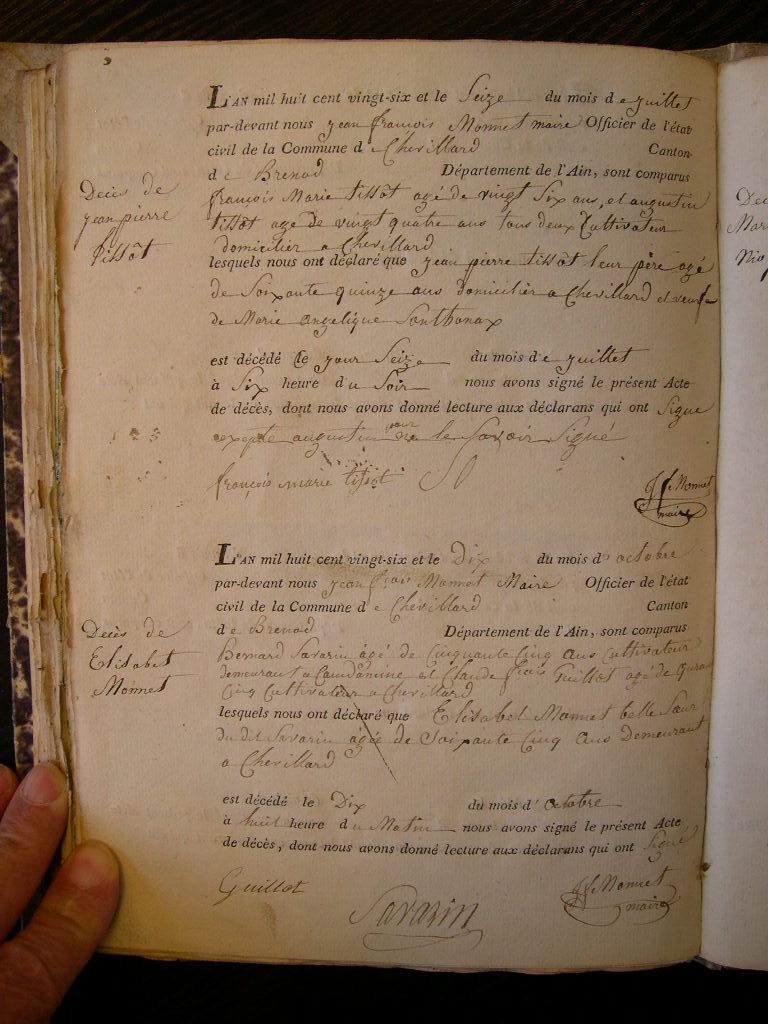 L'AN mil huit cent vingt-six et le Seize du mois de juillet
par-devant nous jean françois Monnet maire Officier de l'état
civil de la Commune de Chevillard Canton
de Brenod Département de l'Ain, sont comparus
Decès de
jean pierre
tissôt
françois Marie tissôt agé de vingt Six ans, et augustin
tissôt agé de vingt quatre ans tous deux Cultivateur
domicilier a Chevillard
lesquels nous ont déclaré que jean pierre tissôt leur père agé
de Soixante quinze ans domicilier a Chevillard et veuf
de Marie angelique Sonthonax
est décédé le jour Seize du mois de juillet
à Six heure du Soir nous avons signé le présent Acte
de décès, dont nous avons donné lecture aux déclarans qui ont Signe
exepte augustin pour ne le Savoir Signé
françois marie tissot
J f Monnet
maire
L'AN mil huit cent vingt-six et le Dix du mois d'octobre
par-devant nous jean frais Monnet Maire Officier de l'état
civil de la Commune de Chevillard Canton
de Brenod Département de l'Ain, sont comparus
Decès de
Elisabet
Monnet
Bernard Savarin agé de Cinquante Cinq ans Cultivateur
demeurant a et Claude frais Guillot agé de
Cinq Cultivateur a Chevillard
lesquels nous ont déclaré que Elisabet Monnet belle Sœur
du dit Savarin agée de Soixante Cinq ans Demeurant
a Chevillard
est décédé le Dix du mois d'octobre
à huit heure du Matin nous avons signé le présent Acte
de décès, dont nous avons donné lecture aux déclarans qui ont Signé
Guillot
Savarin
J f Monnet
maire